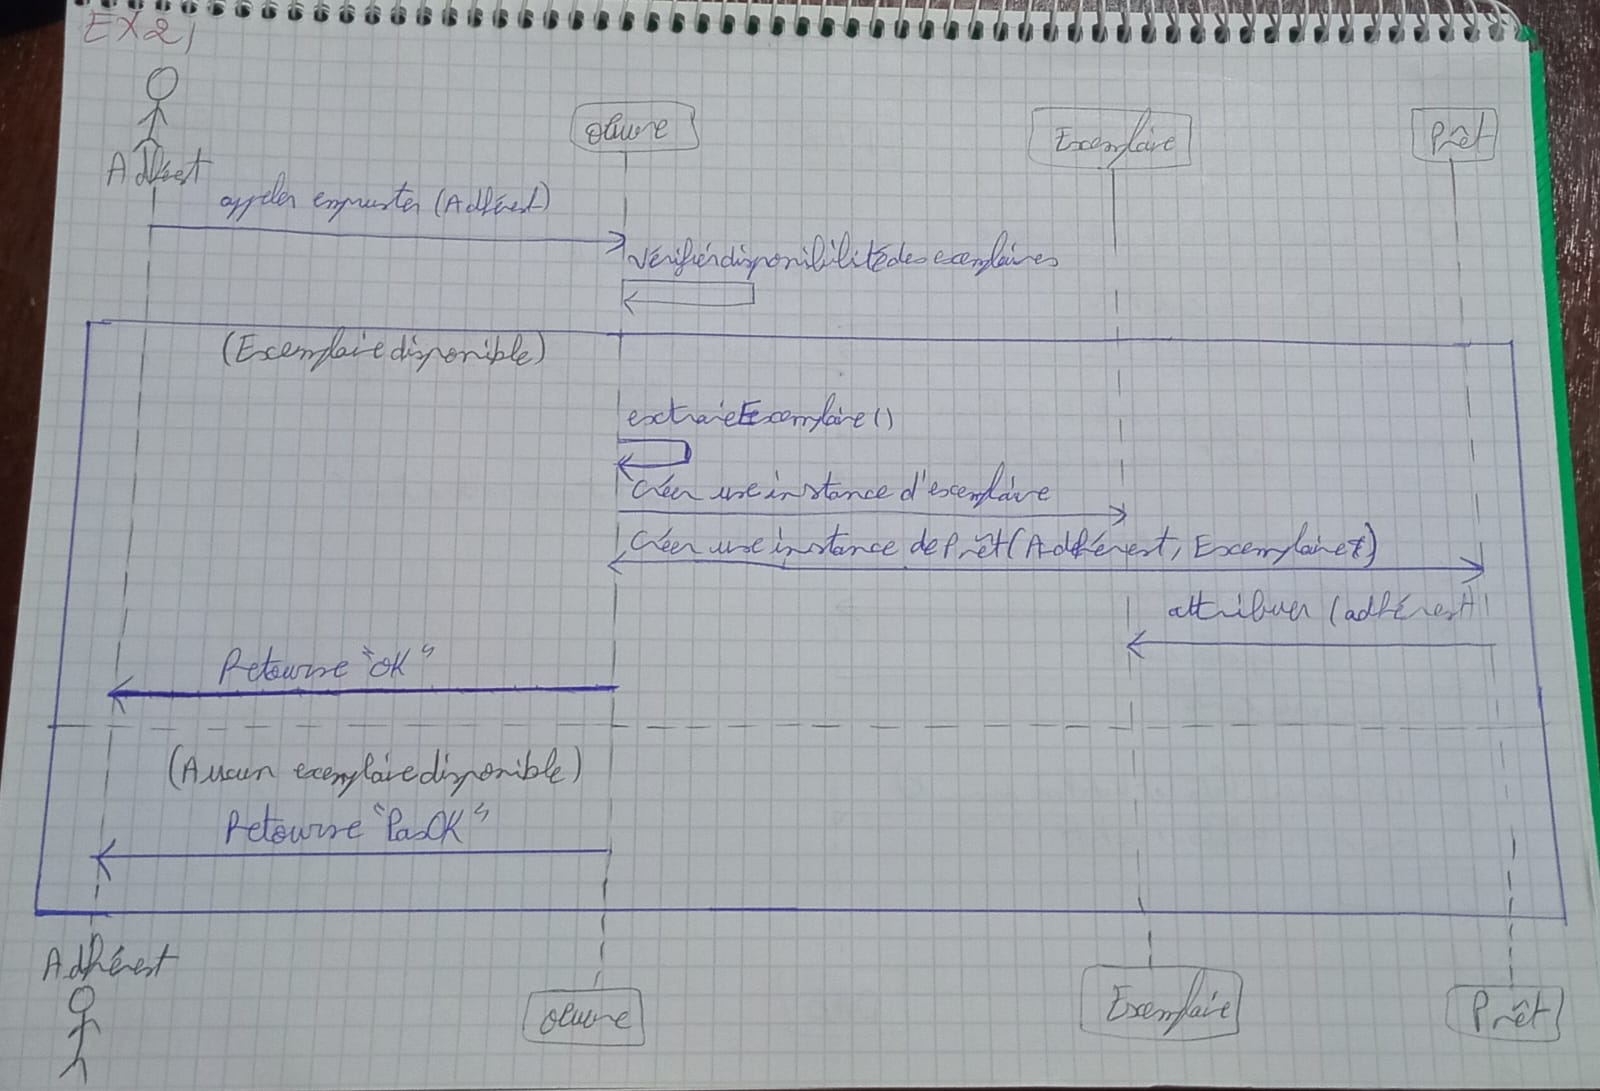 EX2)
Œuvre
Exemplaire
Prêt
Adhérent
appeler emprunter (Adhérent)
Vérifier disponibilité des exemplaires
(Exemplaire disponible)
extraireExemplaire()
Créer une instance d'exemplaire
Créer une instance de Prêt (Adhérent, Exemplaire)
attribuer (adhérent)
Retourne "OK"
(Aucun exemplaire disponible)
Retourne "PasOK"
Adhérent
Œuvre
Exemplaire
Prêt